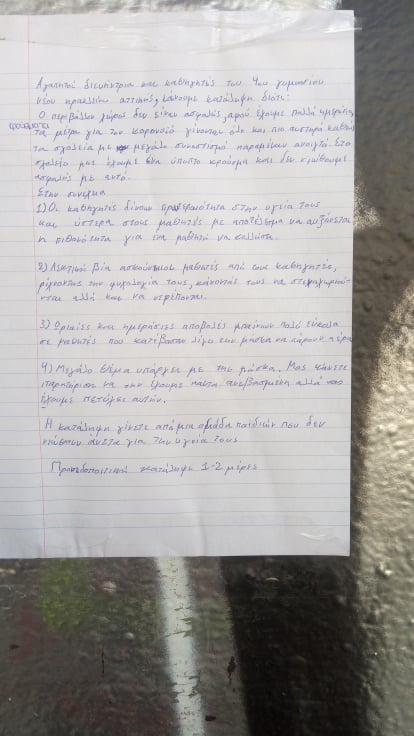 Αγαπητοί διευθύντρια και καθηγητές του 4ου γυμνασίου
νέου ηρακλείου αττικής, κάνουμε κατάληψη διότι:
Ο περιβάλλον χώρος δεν είναι ασφαλής, αφού έχουμε πολλά
κρούσματα τα μέτρα για τον κορονοϊό γίνονται όλο και πιο αυστηρά καθώς
τα σχολεία με μεγάλο συνωστισμό παραμένουν ανοιχτά. Στο
σχολείο μας έχουμε ένα ύποπτο κρούσμα και δεν νιώθουμε
ασφαλής με αυτό.
Στην συνέχεια
1) Οι καθηγητές δίνουν προτεραιότητα στην υγεία τους
και ύστερα στους μαθητές με αποτέλεσμα να αυξάνεται
η πιθανότητα για ένα μαθητή να κολλήσει.
2) Λεκτική βία ασκούνται μαθητές από τους καθηγητές,
ρίχνοντας την ψυχολογία τους, κάνοντάς τους να
αλλά και να ντρέπονται.
3) Ωριαίες και ημερήσιες αποβολές μπαίνουν πολύ εύκολα
σε μαθητές που κατέβασαν λίγο την μάσκα να πάρουν αέρα
4) Μεγάλο θέμα υπάρχει με την μάσκα. Μας κάνετε
παρατήρηση να την έχουμε πάντα ανεβασμένη αλλά
έχουμε πετύχει αυτών.
Η κατάληψη γίνετε από μια ομάδα παιδιών που δεν
νιώθουν άνετα για την υγεία τους
Προειδοποιητική κατάληψη 1-2 μέρες